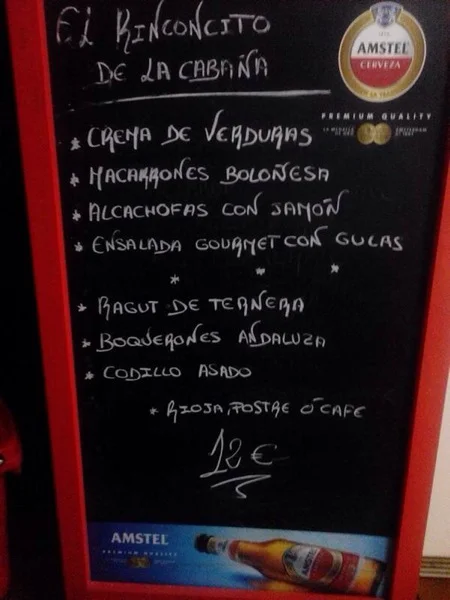 El RINCONCITO
DE LA CABAÑA
AMSTEL
CERVEZA
PREMIUM QUALITY
* CREMA DE VERDURAS
* MACARRONES BOLOÑESA
* ALCACHOFAS CON JAMÓN
* ENSALADA GOURMET CON GULAS
* * *
* RAGUT DE TERNERA
* BOQUERONES ANDALUZA
* CODILLO ASADO
* RIOJA, POSTRE Ó CAFE
12 €
AMSTEL
PREMIUM QUALITY
AMSTEL